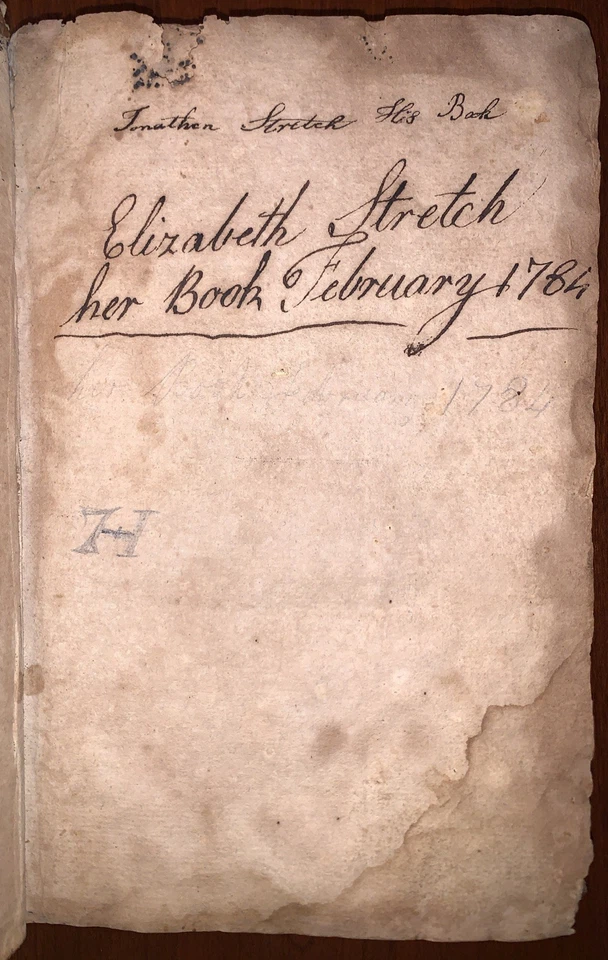 Jonathen Stretch His Book
Elizabeth Stretch
her Book February 1784
her Book February 1784
7H